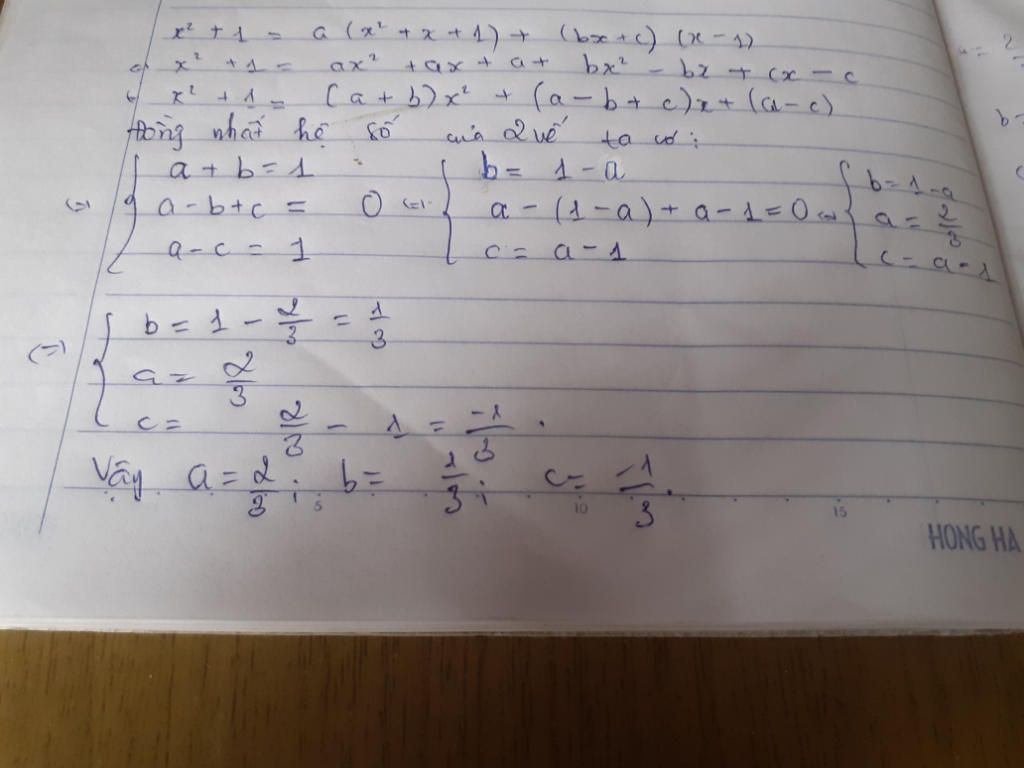 x² + 1 = a (x² + x + 1) + (bx + c) (x - 1)
<=> x² + 1 = ax² + ax + a + bx² - bx + cx - c
<=> x² + 1 = (a + b)x² + (a - b + c)x + (a - c)
Đồng nhất hệ số của 2 vế ta có:
<=> { a + b = 1 ; a - b + c = 0 ; a - c = 1 <=> { b = 1 - a ; a - (1 - a) + a - 1 = 0 ; c = a - 1 <=> { b = 1 - a ; a = 2/3 ; c = a - 1
<=> { b = 1 - 2/3 = 1/3
a = 2/3
c = 2/3 - 1 = -1/3 .
Vậy a = 2/3 ; b = 1/3 ; c = -1/3 .
5 10 15
HONG HA
a = 2
b =
c